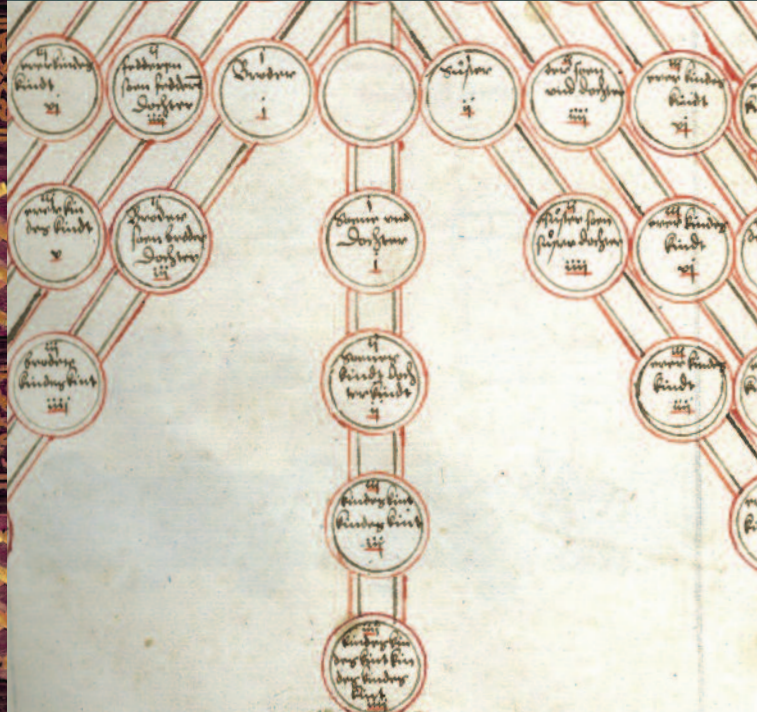 iij
erer kindes
kindt
vj
ij
fedderen
soen fedderen
dochter
iiij
i
Broder
i
Suster
ij
der soen
vnd dochter
iiij
iij
erer kindes
kindt
vj
iij
erer kin
des kindt
v
ij
Broder
soen broder
Dochter
iij
i
Sonne vnd
Dochter
i
ij
suster soen
suster dochter
iiij
iij
erer kindes
kindt
vj
iij
broder
kindes kint
iiij
ij
Sones
kindt doch
ter kindt
ij
iij
erer kindes
kindt
iij
kindes kint
kindes kint
iij
iiij
kindes kin
des kint kin
des kindes
kint
iiij